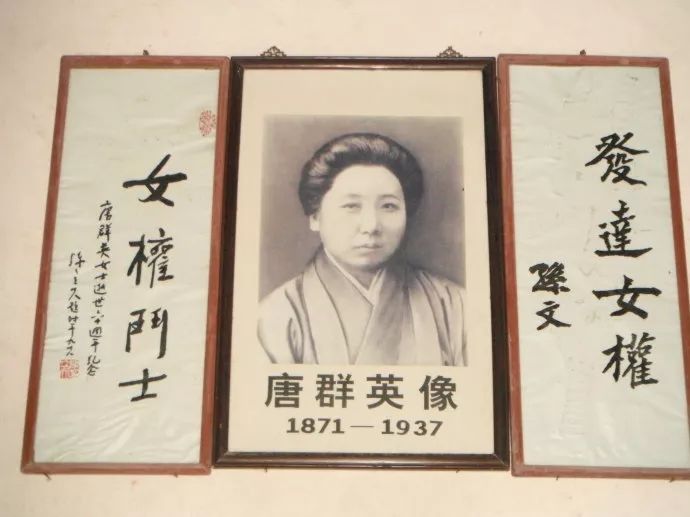 發達女權
孫文
唐群英像
1871—1937
女權鬥士
唐群英女士逝世六十週年紀念